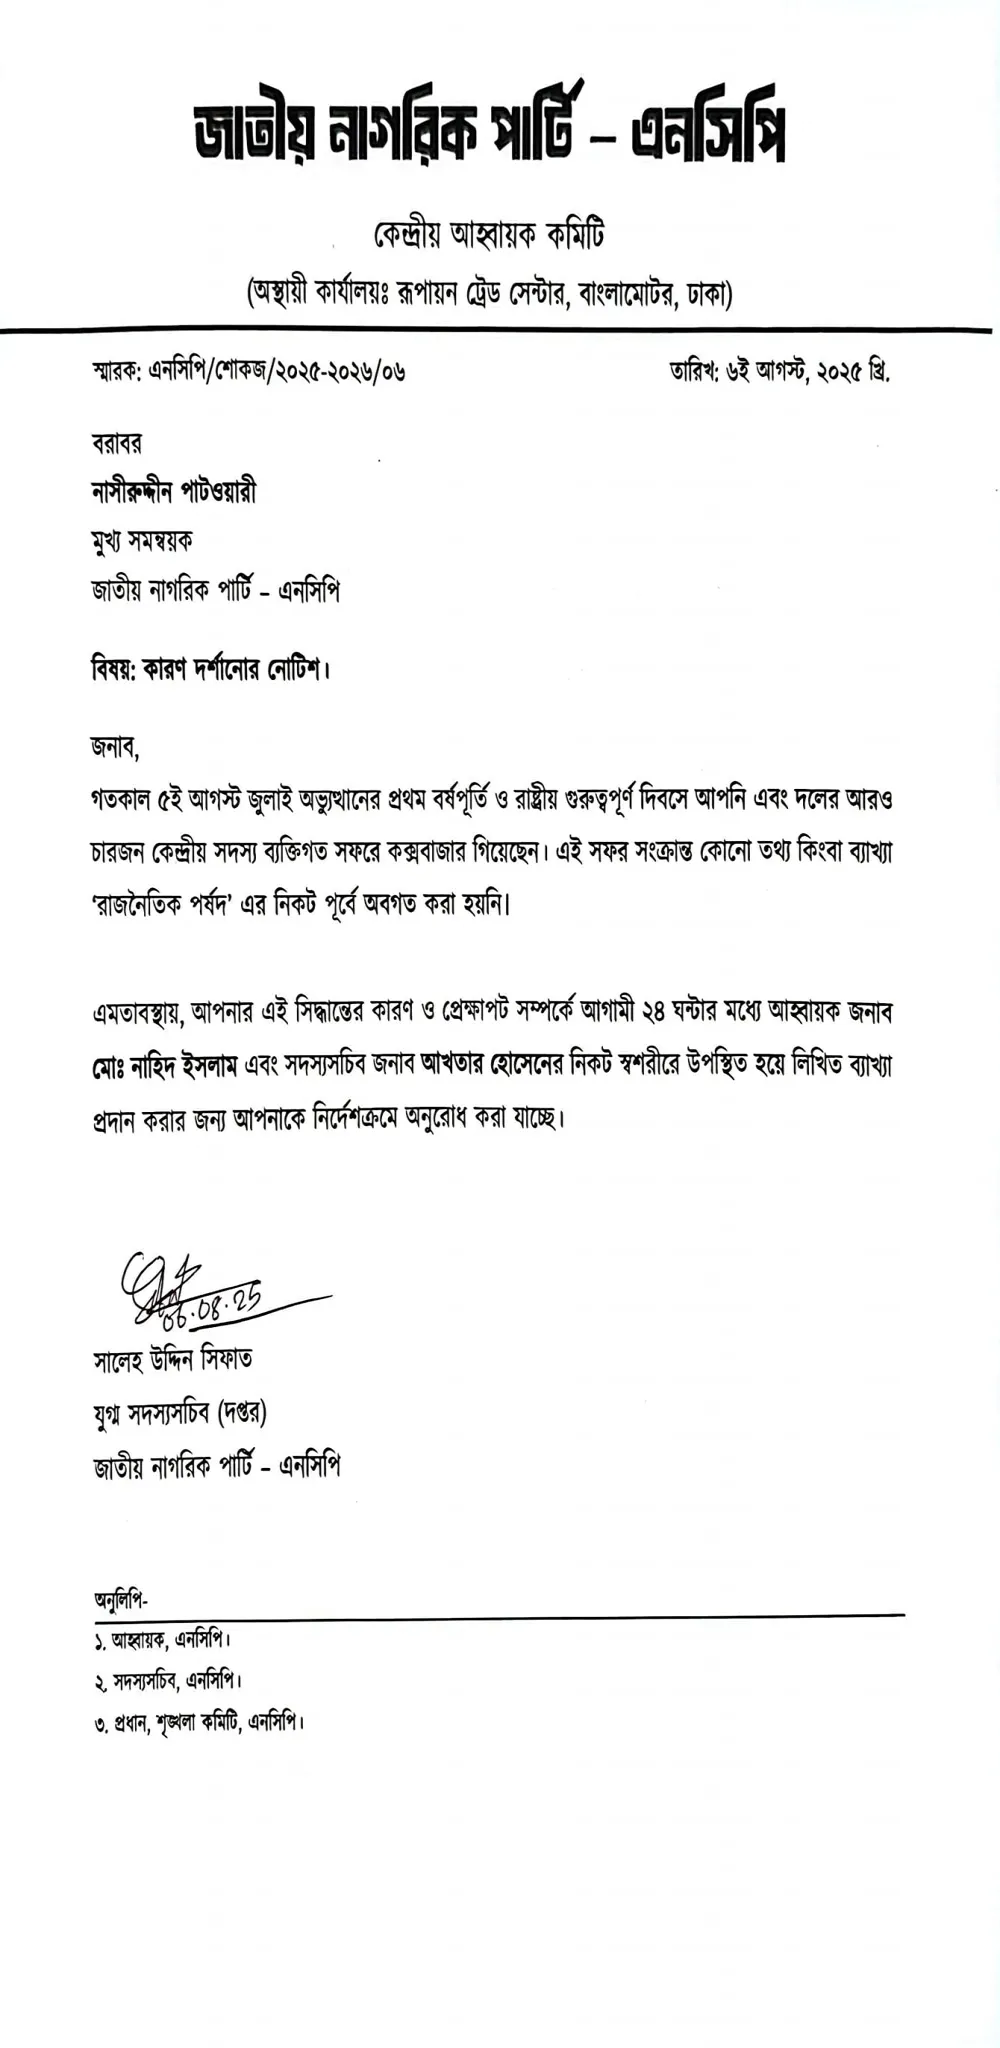 জাতীয় নাগরিক পার্টি – এনসিপি
কেন্দ্রীয় আহ্বায়ক কমিটি
(অস্থায়ী কার্যালয়ঃ রূপায়ন ট্রেড সেন্টার, বাংলামোটর, ঢাকা)
স্মারক: এনসিপি/শোকজ/২০২৫-২০২৬/০৬ তারিখ: ৬ই আগস্ট, ২০২৫ খ্রি.
বরাবর
নাসীরুদ্দীন পাটওয়ারী
মুখ্য সমন্বয়ক
জাতীয় নাগরিক পার্টি – এনসিপি
বিষয়: কারণ দর্শানোর নোটিশ।
জনাব,
গতকাল ৫ই আগস্ট জুলাই অভ্যুত্থানের প্রথম বর্ষপূর্তি ও রাষ্ট্রীয় গুরুত্বপূর্ণ দিবসে আপনি এবং দলের আরও
চারজন কেন্দ্রীয় সদস্য ব্যক্তিগত সফরে কক্সবাজার গিয়েছেন। এই সফর সংক্রান্ত কোনো তথ্য কিংবা ব্যাখ্যা
‘রাজনৈতিক পর্ষদ’ এর নিকট পূর্বে অবগত করা হয়নি।
এমতাবস্থায়, আপনার এই সিদ্ধান্তের কারণ ও প্রেক্ষাপট সম্পর্কে আগামী ২৪ ঘন্টার মধ্যে আহ্বায়ক জনাব
মোঃ নাহিদ ইসলাম এবং সদস্যসচিব জনাব আখতার হোসেনের নিকট স্বশরীরে উপস্থিত হয়ে লিখিত ব্যাখ্যা
প্রদান করার জন্য আপনাকে নির্দেশক্রমে অনুরোধ করা যাচ্ছে।
06.08.25
সালেহ উদ্দিন সিফাত
যুগ্ম সদস্যসচিব (দপ্তর)
জাতীয় নাগরিক পার্টি – এনসিপি
অনুলিপি-
১. আহ্বায়ক, এনসিপি।
২. সদস্যসচিব, এনসিপি।
৩. প্রধান, শৃঙ্খলা কমিটি, এনসিপি।